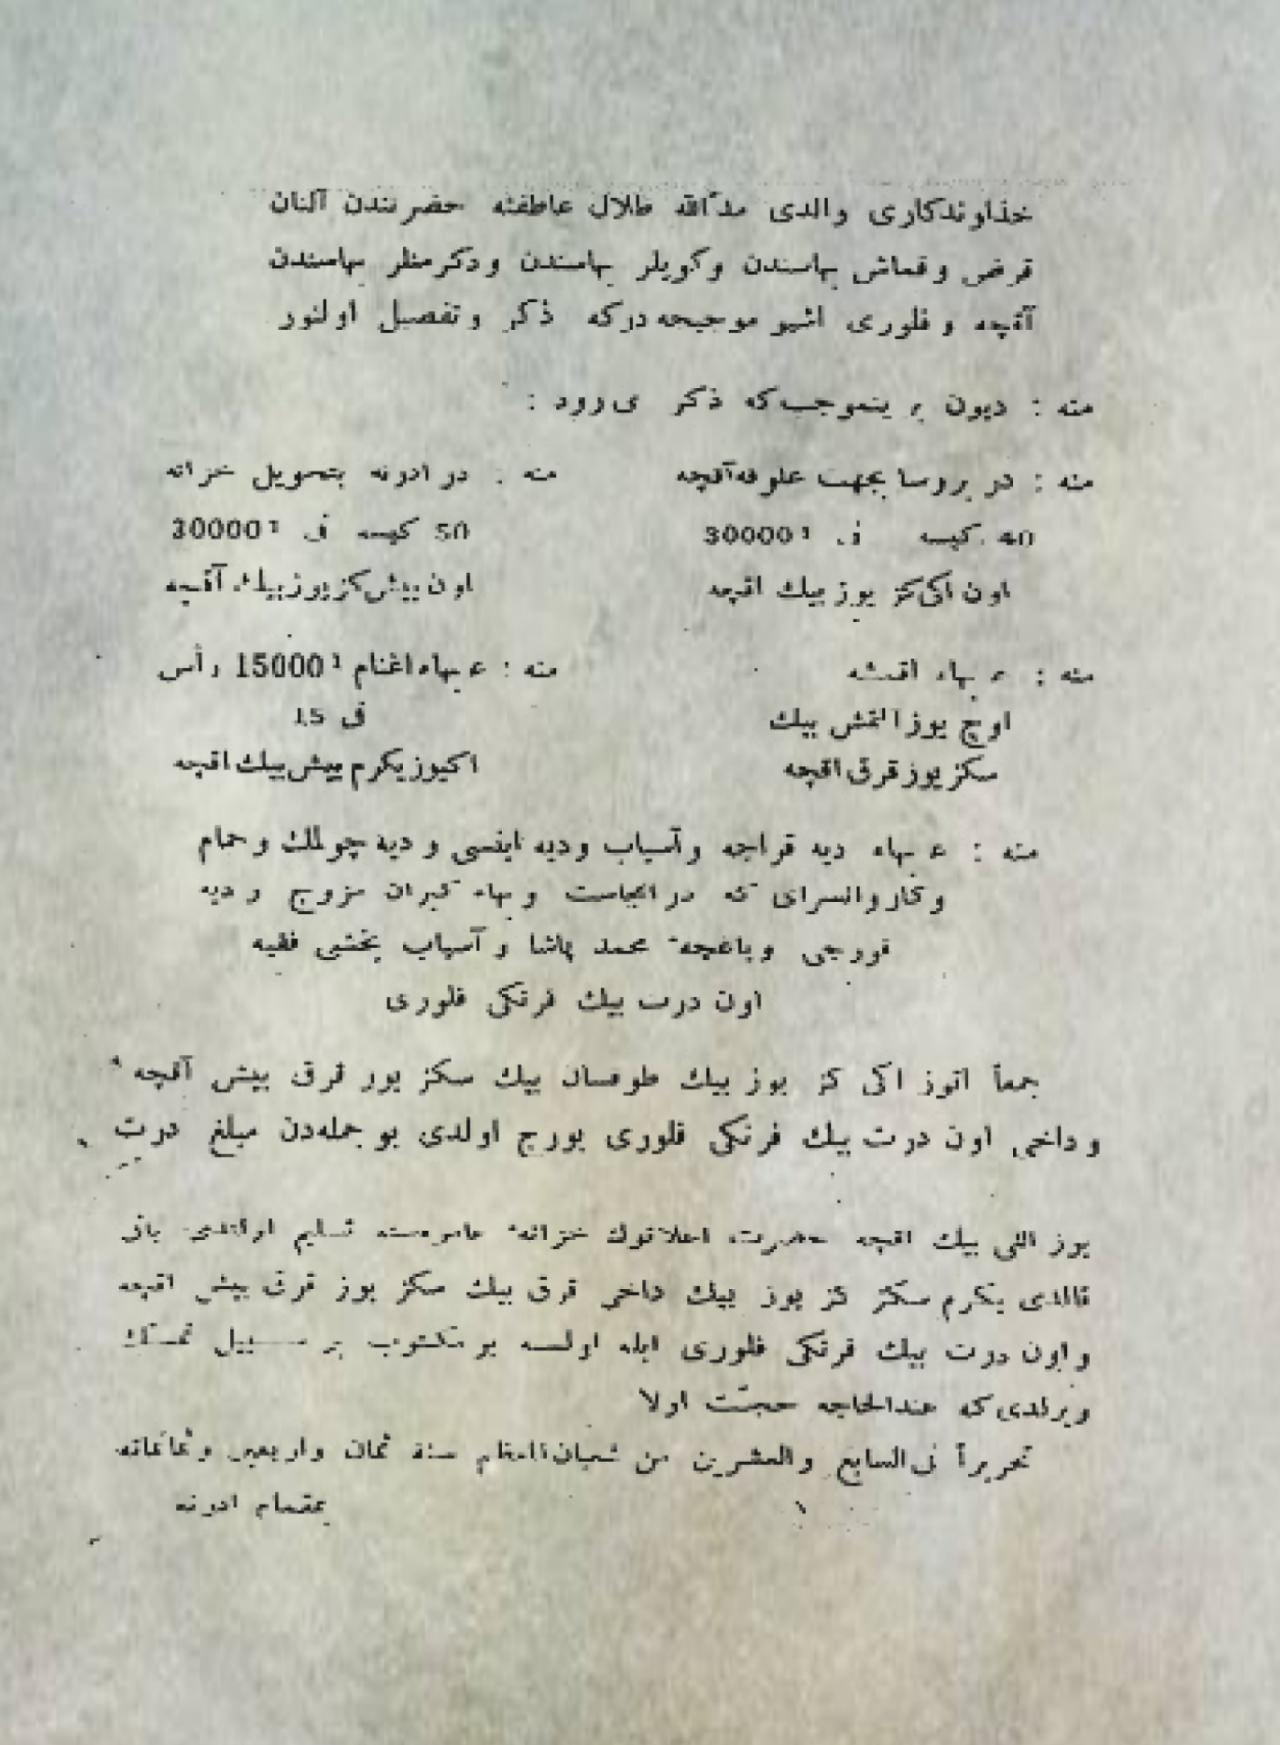 خداوندكارى والدى مدّالله ظلال عاطفته حضرتندن آلنان
قرض وقماش بهاسندن وكويلر بهاسندن ودكرمنلر بهاسندن
آقچه و فلورى اشبو موجبجه دركه ذكر و تفصيل اولنور
منه : ديون بر ينموجب كه ذكر مى رود :
منه : در بروسا بجهت علوفه آقچه
40 كيسه فى 30000¹
اون اكى كز يوز بيك اقچه
منه : در ادرنه بتحويل خزانه
50 كيسه فى 30000¹
اون بيش كز يوز بيك آقچه
منه : ء بهاء اقمشه
اوچ يوز التمش بيك
سكز يوز قرق اقچه
منه : ء بهاء اغنام 15000¹ رأس
فى 15
اكيوز يكرم بيش بيك اقچه
منه : ء بهاء ديه قراجه وآسياب وديه اينسى و ديه چولمك وحمام
وكاروانسراى كه در انجاست وبهاء كبران مزوج وديه
قورجى وباغچهٔ محمد پاشا وآسياب بخشى فقيه
اون درت بيك فرنكى فلورى
جمعاً اتوز اكى كز يوز بيك طوقسان بيك سكز يوز قرق بيش آقچه
وداخى اون درت بيك فرنكى فلورى بورج اولدى بو جمله دن مبلغ درت
يوز اللى بيك اقچه حضرت اعلانوك خزانهٔ عامره سنه تسليم اولندى باقى
قالدى يكرم سكز كز يوز بيك داخى قرق بيك سكز يوز قرق بيش اقچه
واون درت بيك فرنكى فلورى ايله اولسه بو مكتوب بر سبيل تمسّك
ويرلدى كه عندالحاجه حجّت اولا
تحريراً فى السابع والعشرين من شعبان المعظم سنة ثمان واربعين وثمانمائه
بمقام ادرنه